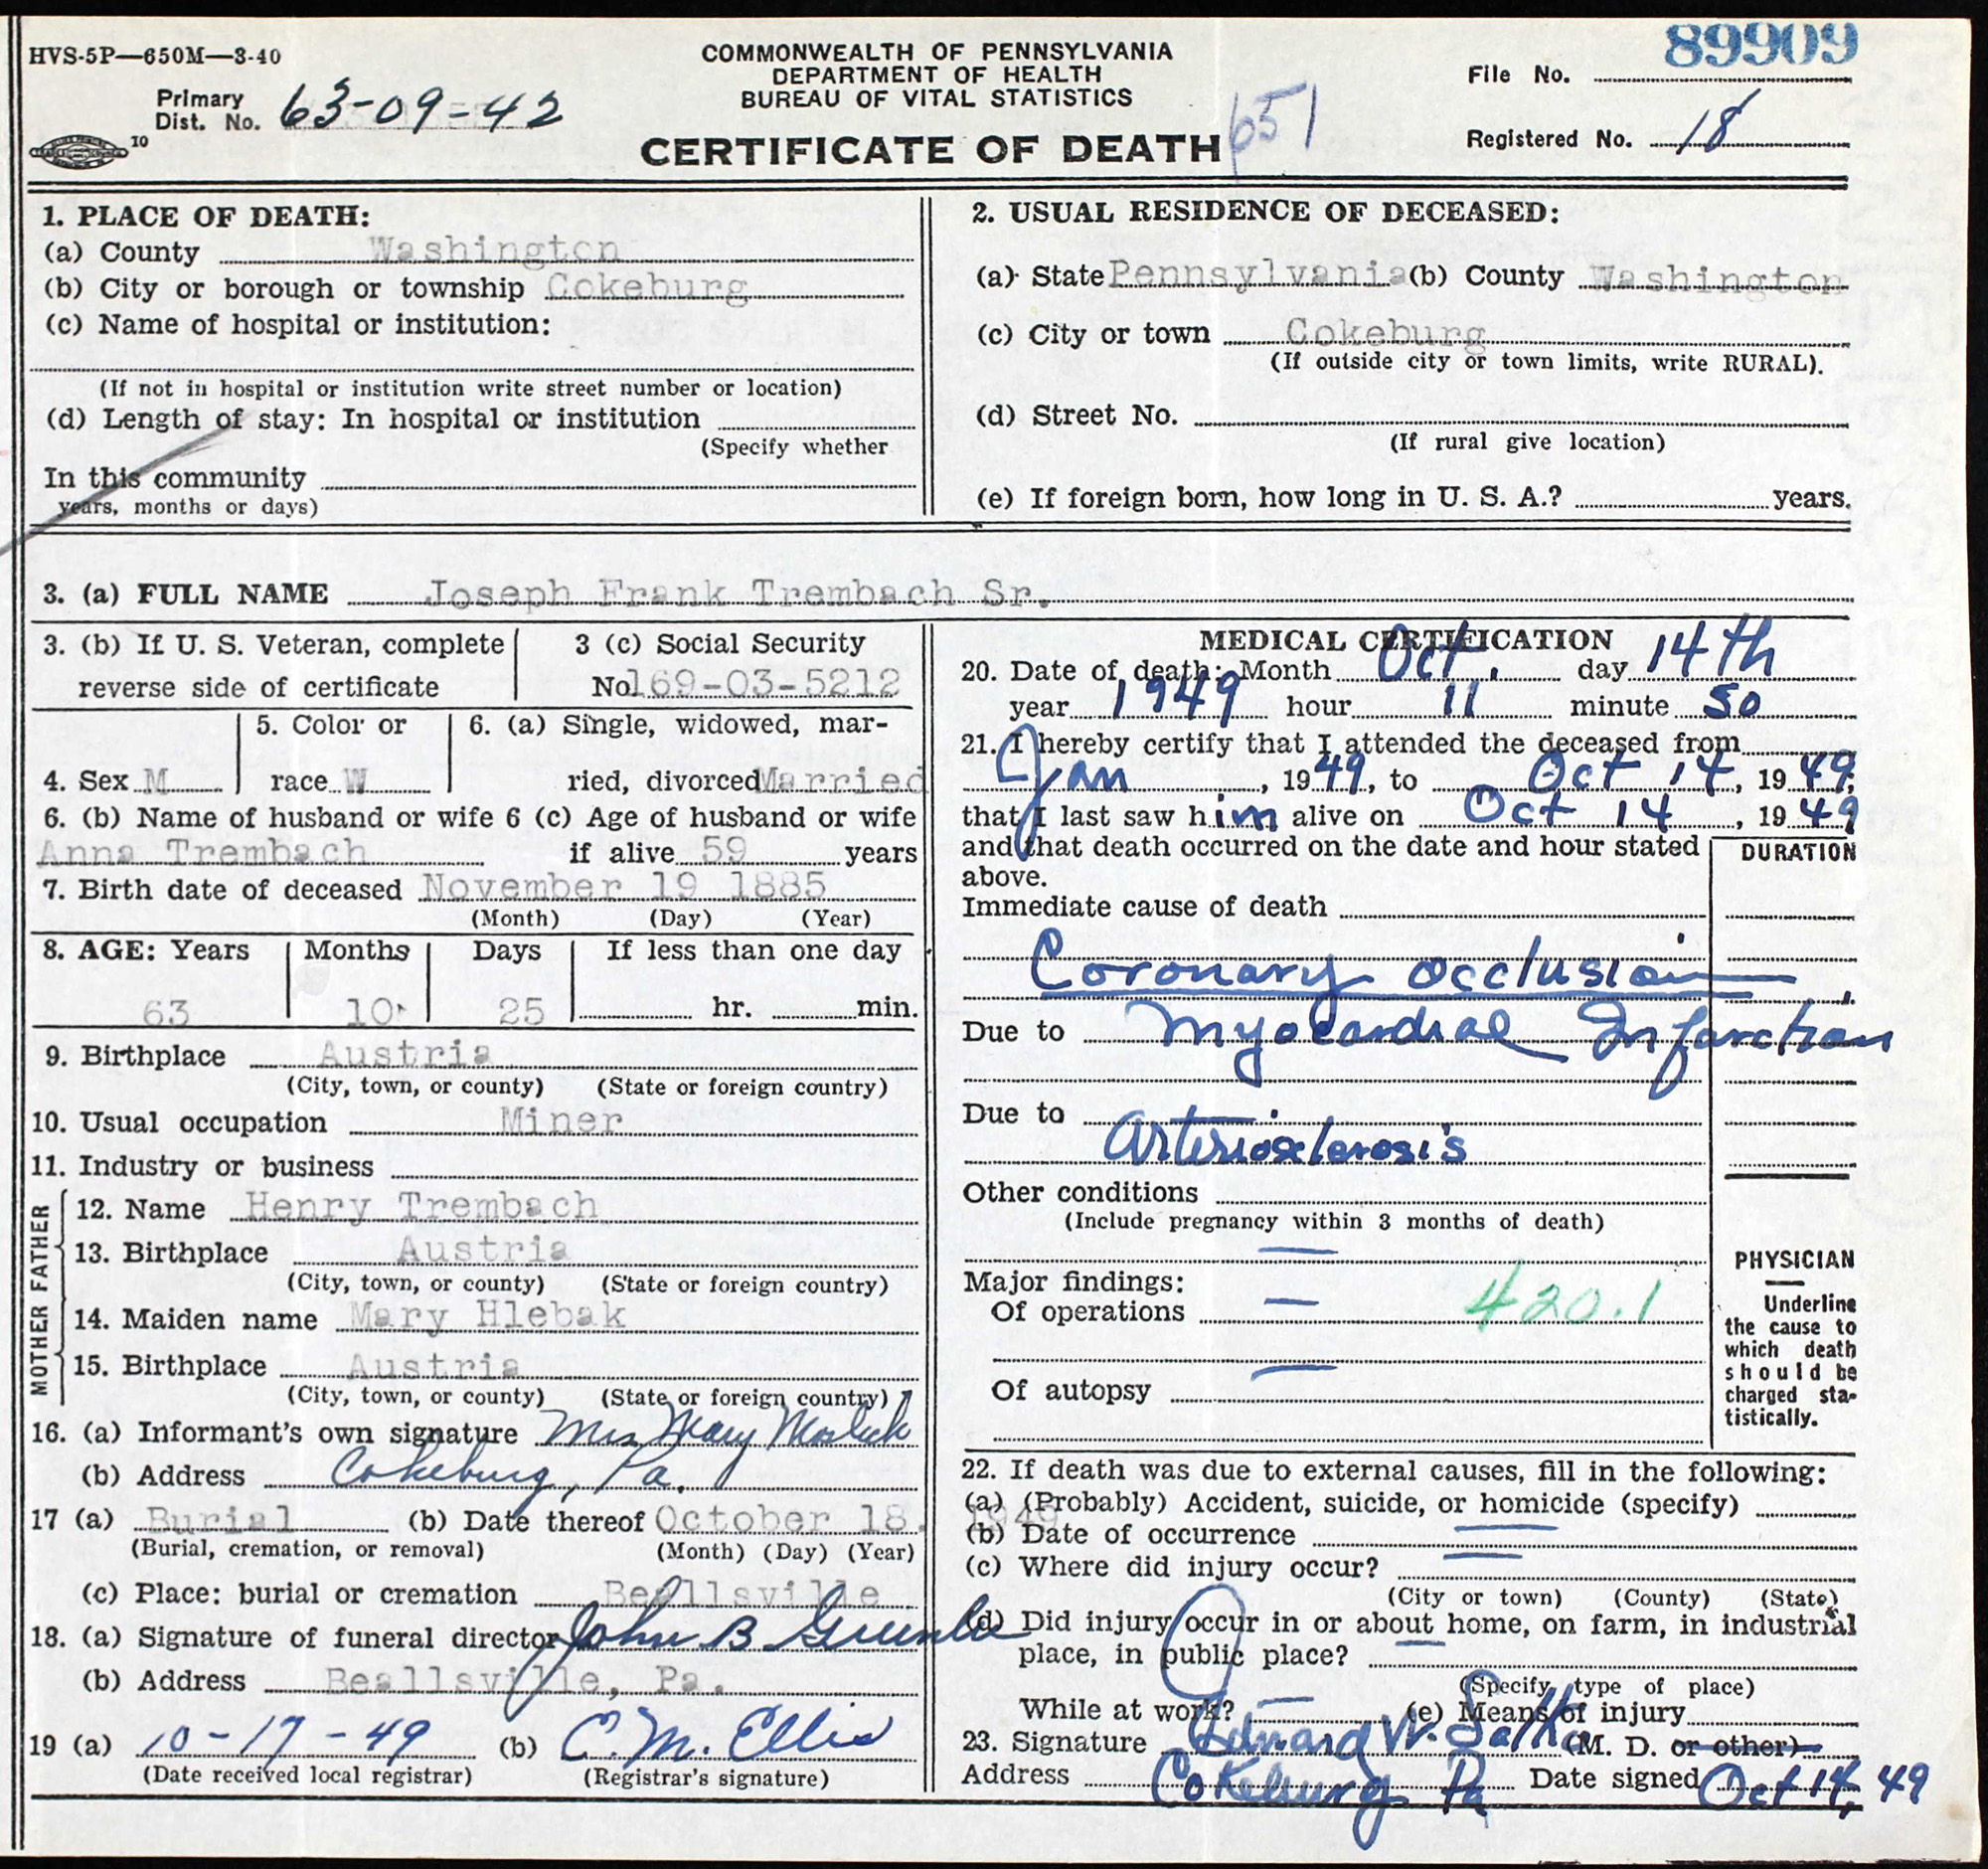 HVS-5P—650M—3-40
COMMONWEALTH OF PENNSYLVANIA
DEPARTMENT OF HEALTH
BUREAU OF VITAL STATISTICS
CERTIFICATE OF DEATH
651
Primary Dist. No. 63-09-42
10
File No. 89909
Registered No. 18
1. PLACE OF DEATH:
(a) County Washington
(b) City or borough or township Cokeburg
(c) Name of hospital or institution:
(If not in hospital or institution write street number or location)
(d) Length of stay: In hospital or institution
(Specify whether
In this community
years, months or days)
2. USUAL RESIDENCE OF DECEASED:
(a) State Pennsylvania (b) County Washington
(c) City or town Cokeburg
(If outside city or town limits, write RURAL).
(d) Street No.
(If rural give location)
(e) If foreign born, how long in U. S. A.? years.
3. (a) FULL NAME Joseph Frank Trembach Sr.
3. (b) If U. S. Veteran, complete
reverse side of certificate
3 (c) Social Security
No. 169-03-5212
4. Sex M
5. Color or
race W
6. (a) Single, widowed, mar-
ried, divorced Married
6. (b) Name of husband or wife 6 (c) Age of husband or wife
Anna Trembach if alive 59 years
7. Birth date of deceased November 19 1885
(Month) (Day) (Year)
8. AGE: Years Months Days If less than one day
63 10 25 hr. min.
9. Birthplace Austria
(City, town, or county) (State or foreign country)
10. Usual occupation Miner
11. Industry or business
FATHER
12. Name Henry Trembach
13. Birthplace Austria
(City, town, or county) (State or foreign country)
MOTHER
14. Maiden name Mary Hlebak
15. Birthplace Austria
(City, town, or county) (State or foreign country)
16. (a) Informant's own signature Mrs Mary
(b) Address Cokeburg, Pa.
17 (a) Burial (b) Date thereof October 18. 1949
(Burial, cremation, or removal) (Month) (Day) (Year)
(c) Place: burial or cremation Beallsville
18. (a) Signature of funeral director John B Greenlee
(b) Address Beallsville, Pa.
19 (a) 10-17-49 (b) C. M. Ellis
(Date received local registrar) (Registrar's signature)
MEDICAL CERTIFICATION
20. Date of death: Month Oct. day 14th
year 1949 hour 11 minute 50
21. I hereby certify that I attended the deceased from
Jan, 1949, to Oct 14, 1949;
that I last saw him alive on Oct 14, 1949
and that death occurred on the date and hour stated
above.
DURATION
Immediate cause of death
Coronary occlusion
Due to Myocardial Infarction
Due to
Arteriosclerosis
Other conditions
(Include pregnancy within 3 months of death)
Major findings:
Of operations — 420.1
Of autopsy
PHYSICIAN
Underline
the cause to
which death
should be
charged sta-
tistically.
22. If death was due to external causes, fill in the following:
(a) (Probably) Accident, suicide, or homicide (specify)
(b) Date of occurrence
(c) Where did injury occur?
(City or town) (County) (State)
(d) Did injury occur in or about home, on farm, in industrial
place, in public place?
(Specify type of place)
While at work? (e) Means of injury
23. Signature Edward W. (M. D. or other)
Address Cokeburg Pa Date signed Oct 14, 49